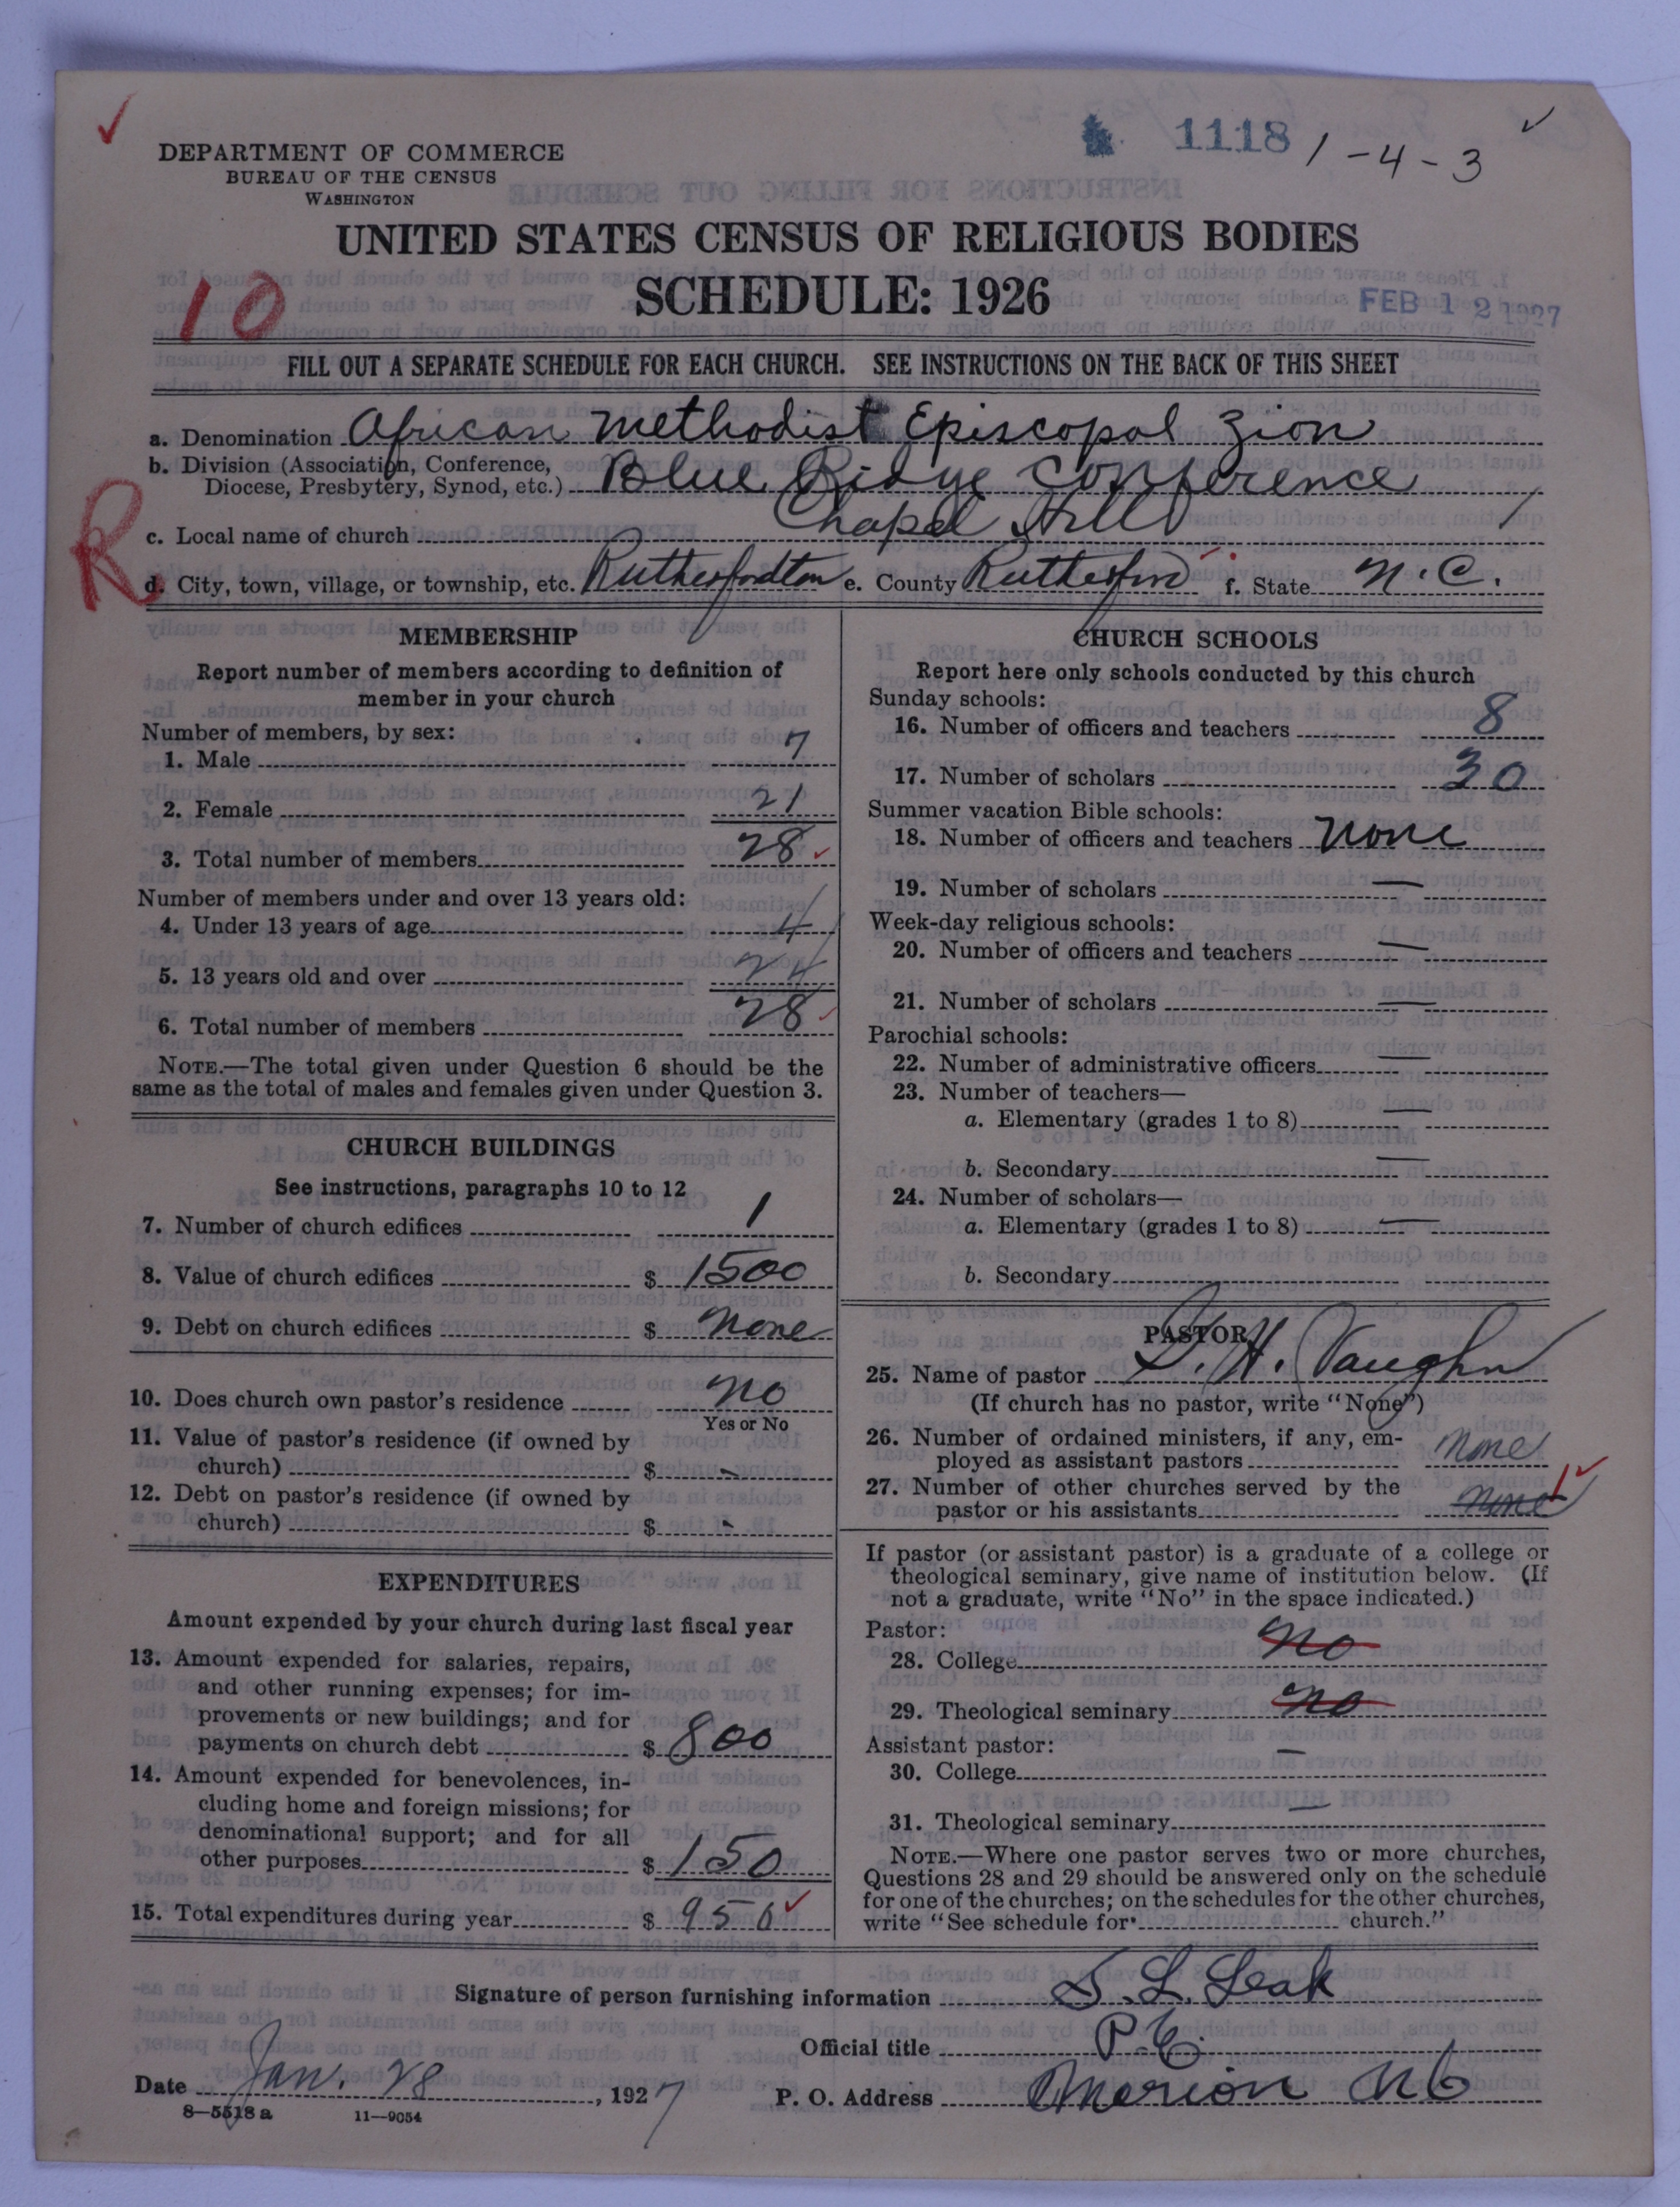 1118 1-4-3
DEPARTMENT OF COMMERCE
BUREAU OF THE CENSUS
WASHINGTON
UNITED STATES CENSUS OF RELIGIOUS BODIES
10
SCHEDULE: 1926
FEB 12 1927
FILL OUT A SEPARATE SCHEDULE FOR EACH CHURCH. SEE INSTRUCTIONS ON THE BACK OF THIS SHEET
a. Denomination African Methodist Episcopal Zion
b. Division (Association, Conference,
Diocese, Presbytery, Synod, etc.) Blue Ridge Conference
R
c. Local name of church Chapel Hill
d. City, town, village, or township, etc. Rutherfordton e. County Rutherford f. State N.C.
MEMBERSHIP
Report number of members according to definition of
member in your church
Number of members, by sex:
1. Male 7
2. Female 21
3. Total number of members 28
Number of members under and over 13 years old:
4. Under 13 years of age 4
5. 13 years old and over 24
6. Total number of members 28
NOTE.—The total given under Question 6 should be the
same as the total of males and females given under Question 3.
CHURCH BUILDINGS
See instructions, paragraphs 10 to 12
7. Number of church edifices 1
8. Value of church edifices $ 1500
9. Debt on church edifices $ None
10. Does church own pastor's residence No
Yes or No
11. Value of pastor's residence (if owned by
church) $ -
12. Debt on pastor's residence (if owned by
church) $ -
EXPENDITURES
Amount expended by your church during last fiscal year
13. Amount expended for salaries, repairs,
and other running expenses; for im-
provements or new buildings; and for
payments on church debt $ 800
14. Amount expended for benevolences, in-
cluding home and foreign missions; for
denominational support; and for all
other purposes $ 150
15. Total expenditures during year $ 950
CHURCH SCHOOLS
Report here only schools conducted by this church
Sunday schools:
16. Number of officers and teachers 8
17. Number of scholars 30
Summer vacation Bible schools:
18. Number of officers and teachers None
19. Number of scholars —
Week-day religious schools:
20. Number of officers and teachers —
21. Number of scholars —
Parochial schools:
22. Number of administrative officers —
23. Number of teachers—
a. Elementary (grades 1 to 8) —
b. Secondary —
24. Number of scholars—
a. Elementary (grades 1 to 8) —
b. Secondary
PASTOR
25. Name of pastor H. Vaughn
(If church has no pastor, write "None")
26. Number of ordained ministers, if any, em-
ployed as assistant pastors None
27. Number of other churches served by the
pastor or his assistants None 1
If pastor (or assistant pastor) is a graduate of a college or
theological seminary, give name of institution below. (If
not a graduate, write "No" in the space indicated.)
Pastor:
28. College No
29. Theological seminary No
Assistant pastor:
30. College —
31. Theological seminary —
NOTE.—Where one pastor serves two or more churches,
Questions 28 and 29 should be answered only on the schedule
for one of the churches; on the schedules for the other churches,
write "See schedule for church."
Signature of person furnishing information S. L. Leak
Official title P.E.
Date Jan. 28, 1927 P. O. Address Marion NC
8—5518 a 11—9054